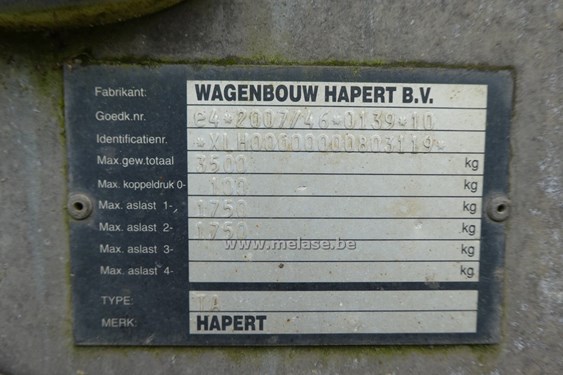 Fabrikant: WAGENBOUW HAPERT B.V.
Goedk.nr. e4*2007/46*0139*10
Identificatienr.
Max.gew.totaal 3500 kg
Max. koppeldruk 0- 100 kg
Max. aslast 1- 1750 kg
Max. aslast 2- 1750 kg
www.melase.be
Max. aslast 3- kg
Max. aslast 4- kg
TYPE:
MERK: HAPERT